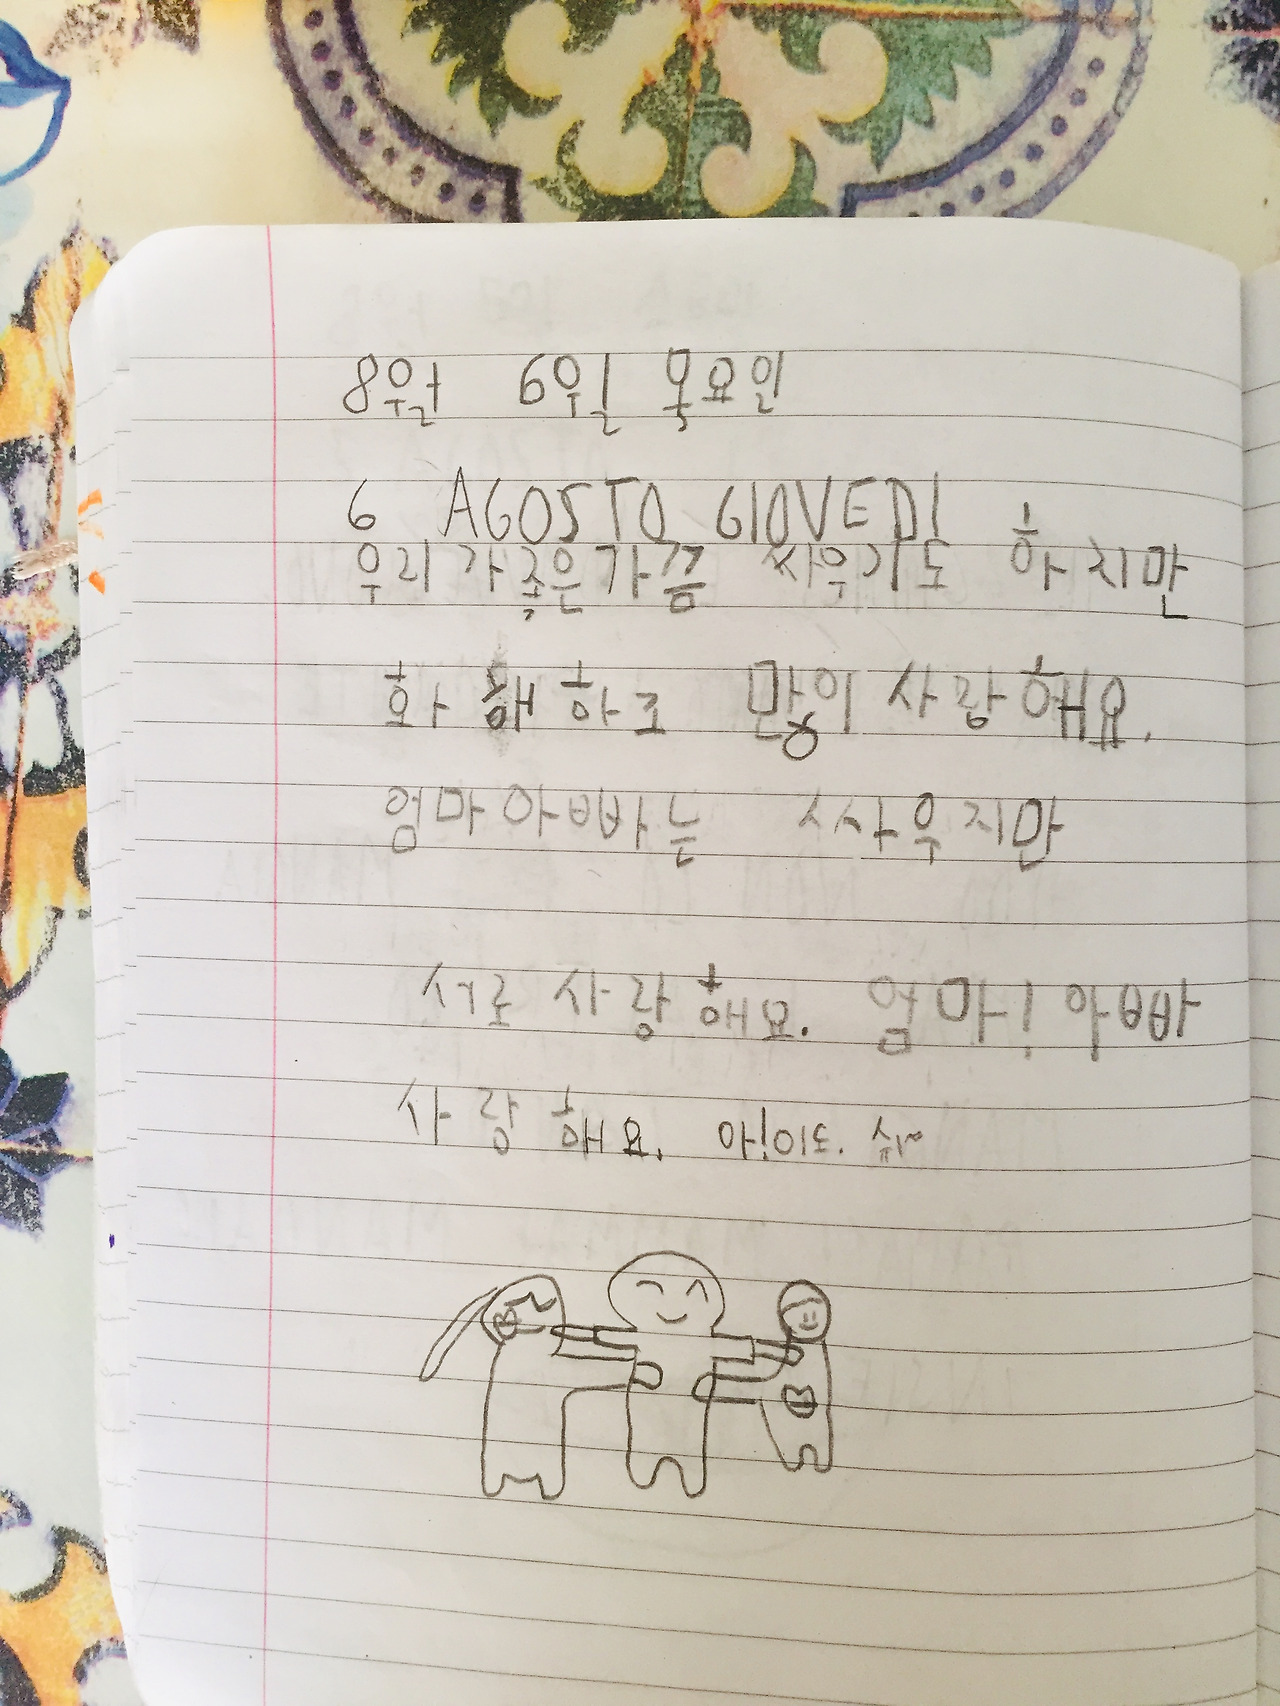 8월 6일 목요일
6 AGOSTO GIOVEDI
우리가좋은가끔 싸우기도 하지만
화해하고 많이 사랑해요.
엄마아빠는 싸우지만
서로 사랑해요. 엄마! 아빠
사랑해요.